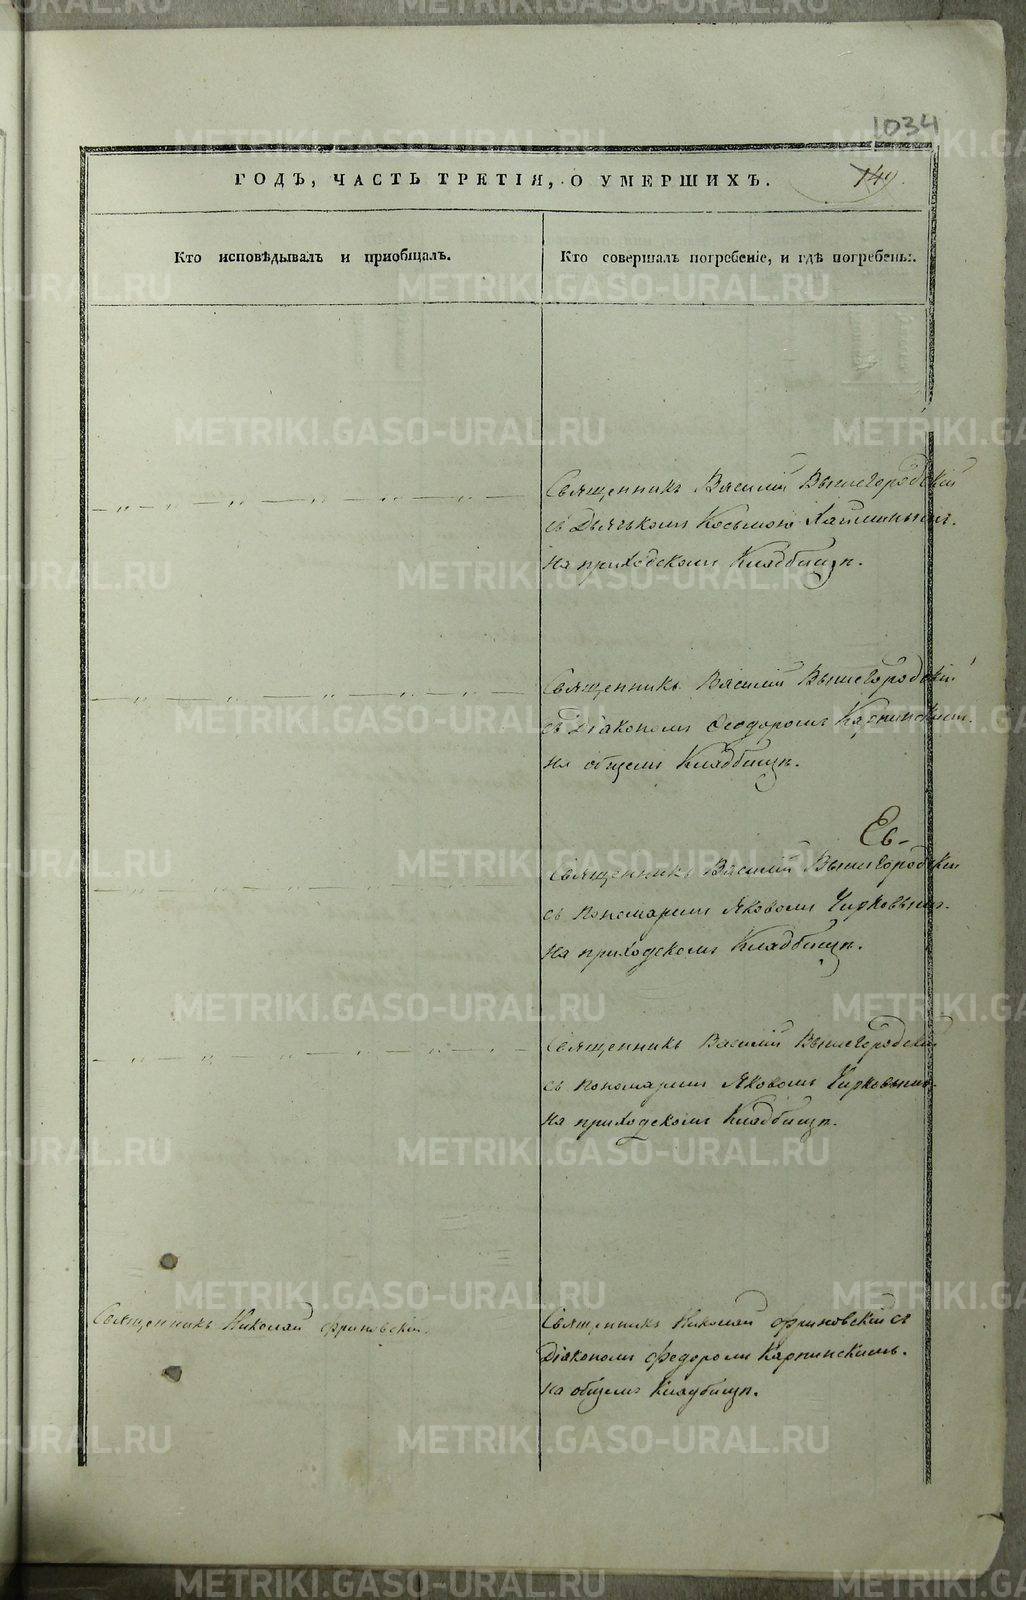 1034
ГОДЪ, ЧАСТЬ ТРЕТІЯ, О УМЕРШИХЪ.
149.
Кто исповѣдывалъ и пріобщалъ.
Кто совершалъ погребеніе, и гдѣ погребены.
Священникъ Василій Вышегородскій
съ Дьячькомъ Косьмою
на приходскомъ Кладбищѣ.
Священникъ Василій Вышегородскій
съ Діакономъ Ѳеодоромъ Карпинскимъ.
на общемъ Кладбищѣ.
Ев-
Священникъ Василій Вышегородскій
съ Пономаремъ Яковомъ Чирковымъ.
на приходскомъ Кладбищѣ.
Священникъ Василій Вышегородскій
съ Пономаремъ Яковомъ Чирковымъ.
на приходскомъ Кладбищѣ.
Священникъ Николай Фриновскій.
Священникъ Николай Фриновскій съ
Діакономъ Федоромъ Карпинскимъ.
на общемъ Кладбищѣ.
METRIKI.GASO-URAL.RU